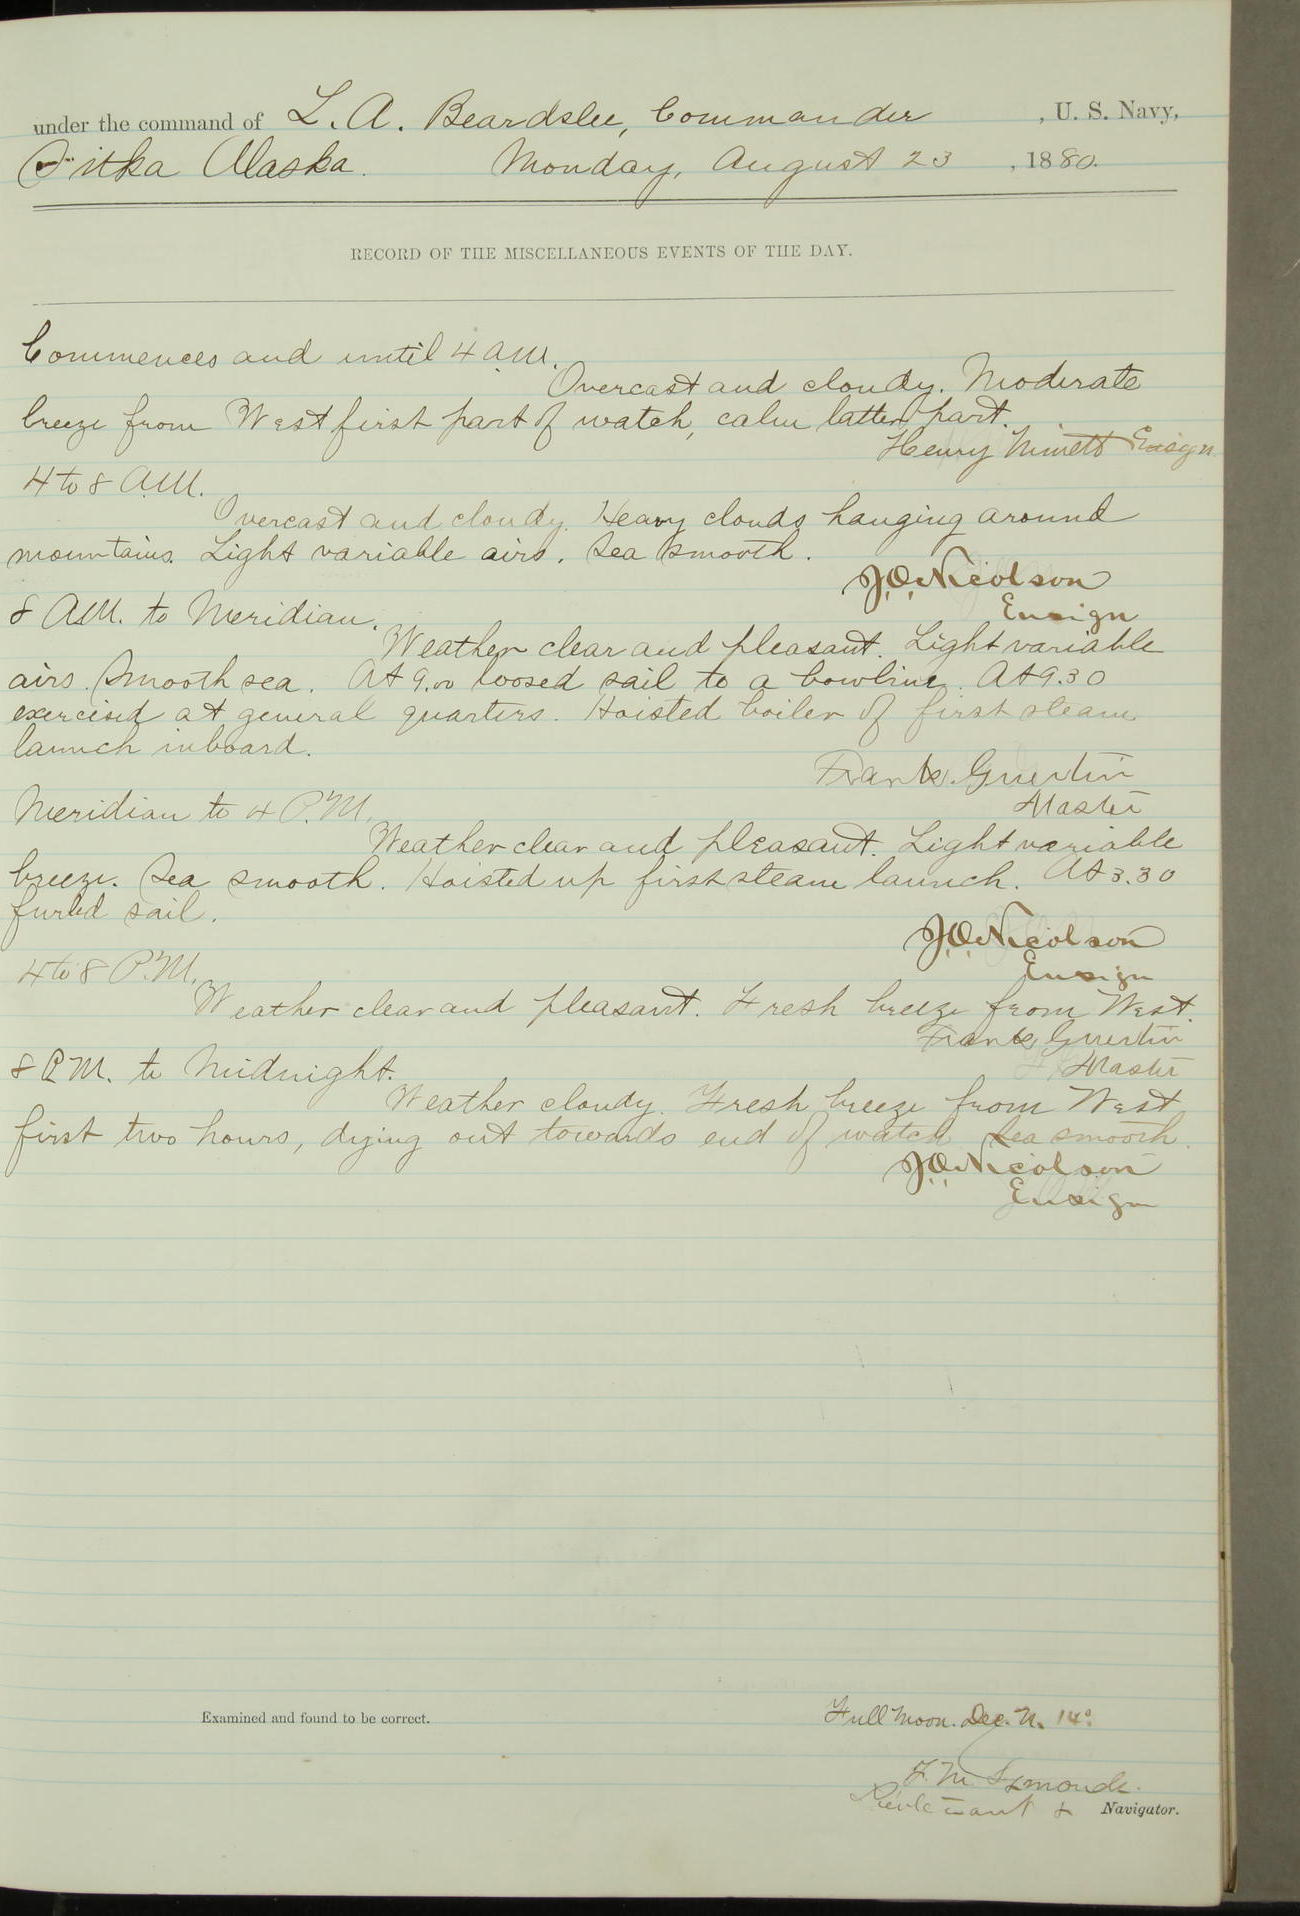 under the command of L. A. Beardslee, Commander , U. S. Navy,
Sitka Alaska. Monday, August 23 , 1880.
RECORD OF THE MISCELLANEOUS EVENTS OF THE DAY.
Commences and until 4 A.M.
Overcast and cloudy. Moderate
breeze from West first part of watch, calm latter part.
Henry Minett Ensign
4 to 8 A.M.
Overcast and cloudy. Heavy clouds hanging around
mountains. Light variable airs. Sea smooth.
J.O. Nicolson
Ensign
8 A.M. to Meridian.
Weather clear and pleasant. Light variable
airs. Smooth sea. At 9.00 loosed sail to a bowline. At 9.30
exercised at general quarters. Hoisted boiler of first steam
launch inboard.
Frank Guertin
Master
Meridian to 4 P.M.
Weather clear and pleasant. Light variable
breeze. Sea smooth. Hoisted up first steam launch. At 3.30
furled sail.
J.O. Nicolson
Ensign
4 to 8 P.M.
Weather clear and pleasant. Fresh breeze from West.
Frank Guertin
Master
8 P.M. to Midnight.
Weather cloudy. Fresh breeze from West
first two hours, dying out towards end of watch. Sea smooth.
J.O. Nicolson
Ensign
Examined and found to be correct.
Full Moon. Dec. N. 14°
F. M. Symonds.
Lieutenant & Navigator.